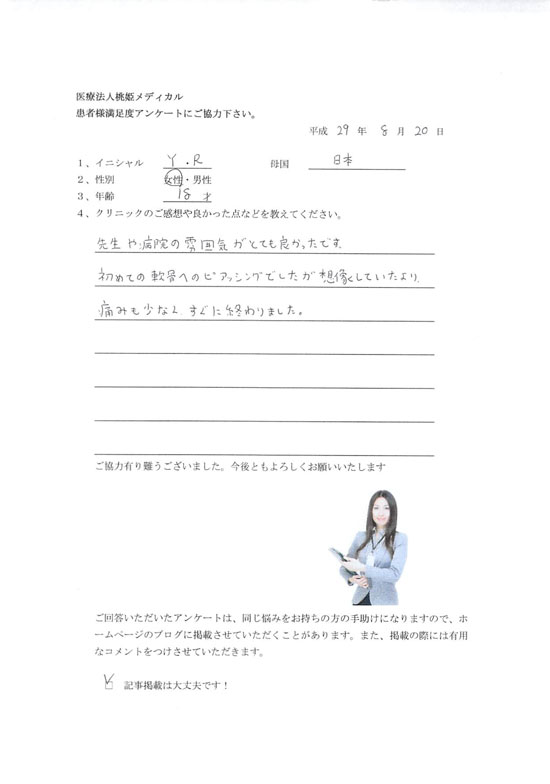 医療法人桃姫メディカル
患者様満足度アンケートにご協力下さい。
平成 29 年 8 月 20 日
1、イニシャル Y.R 母国 日本
2、性別 女性・男性
3、年齢 18 才
4、クリニックのご感想や良かった点などを教えてください。
先生や病院の雰囲気がとても良かったです
初めての軟骨へのピアッシングでしたが想像していたより
痛みも少なく すぐに終わりました。
ご協力有り難うございました。今後ともよろしくお願いいたします
ご回答いただいたアンケートは、同じ悩みをお持ちの方の手助けになりますので、ホ
ームページのブログに掲載させていただくことがあります。また、掲載の際には有用
なコメントをつけさせていただきます。
記事掲載は大丈夫です！